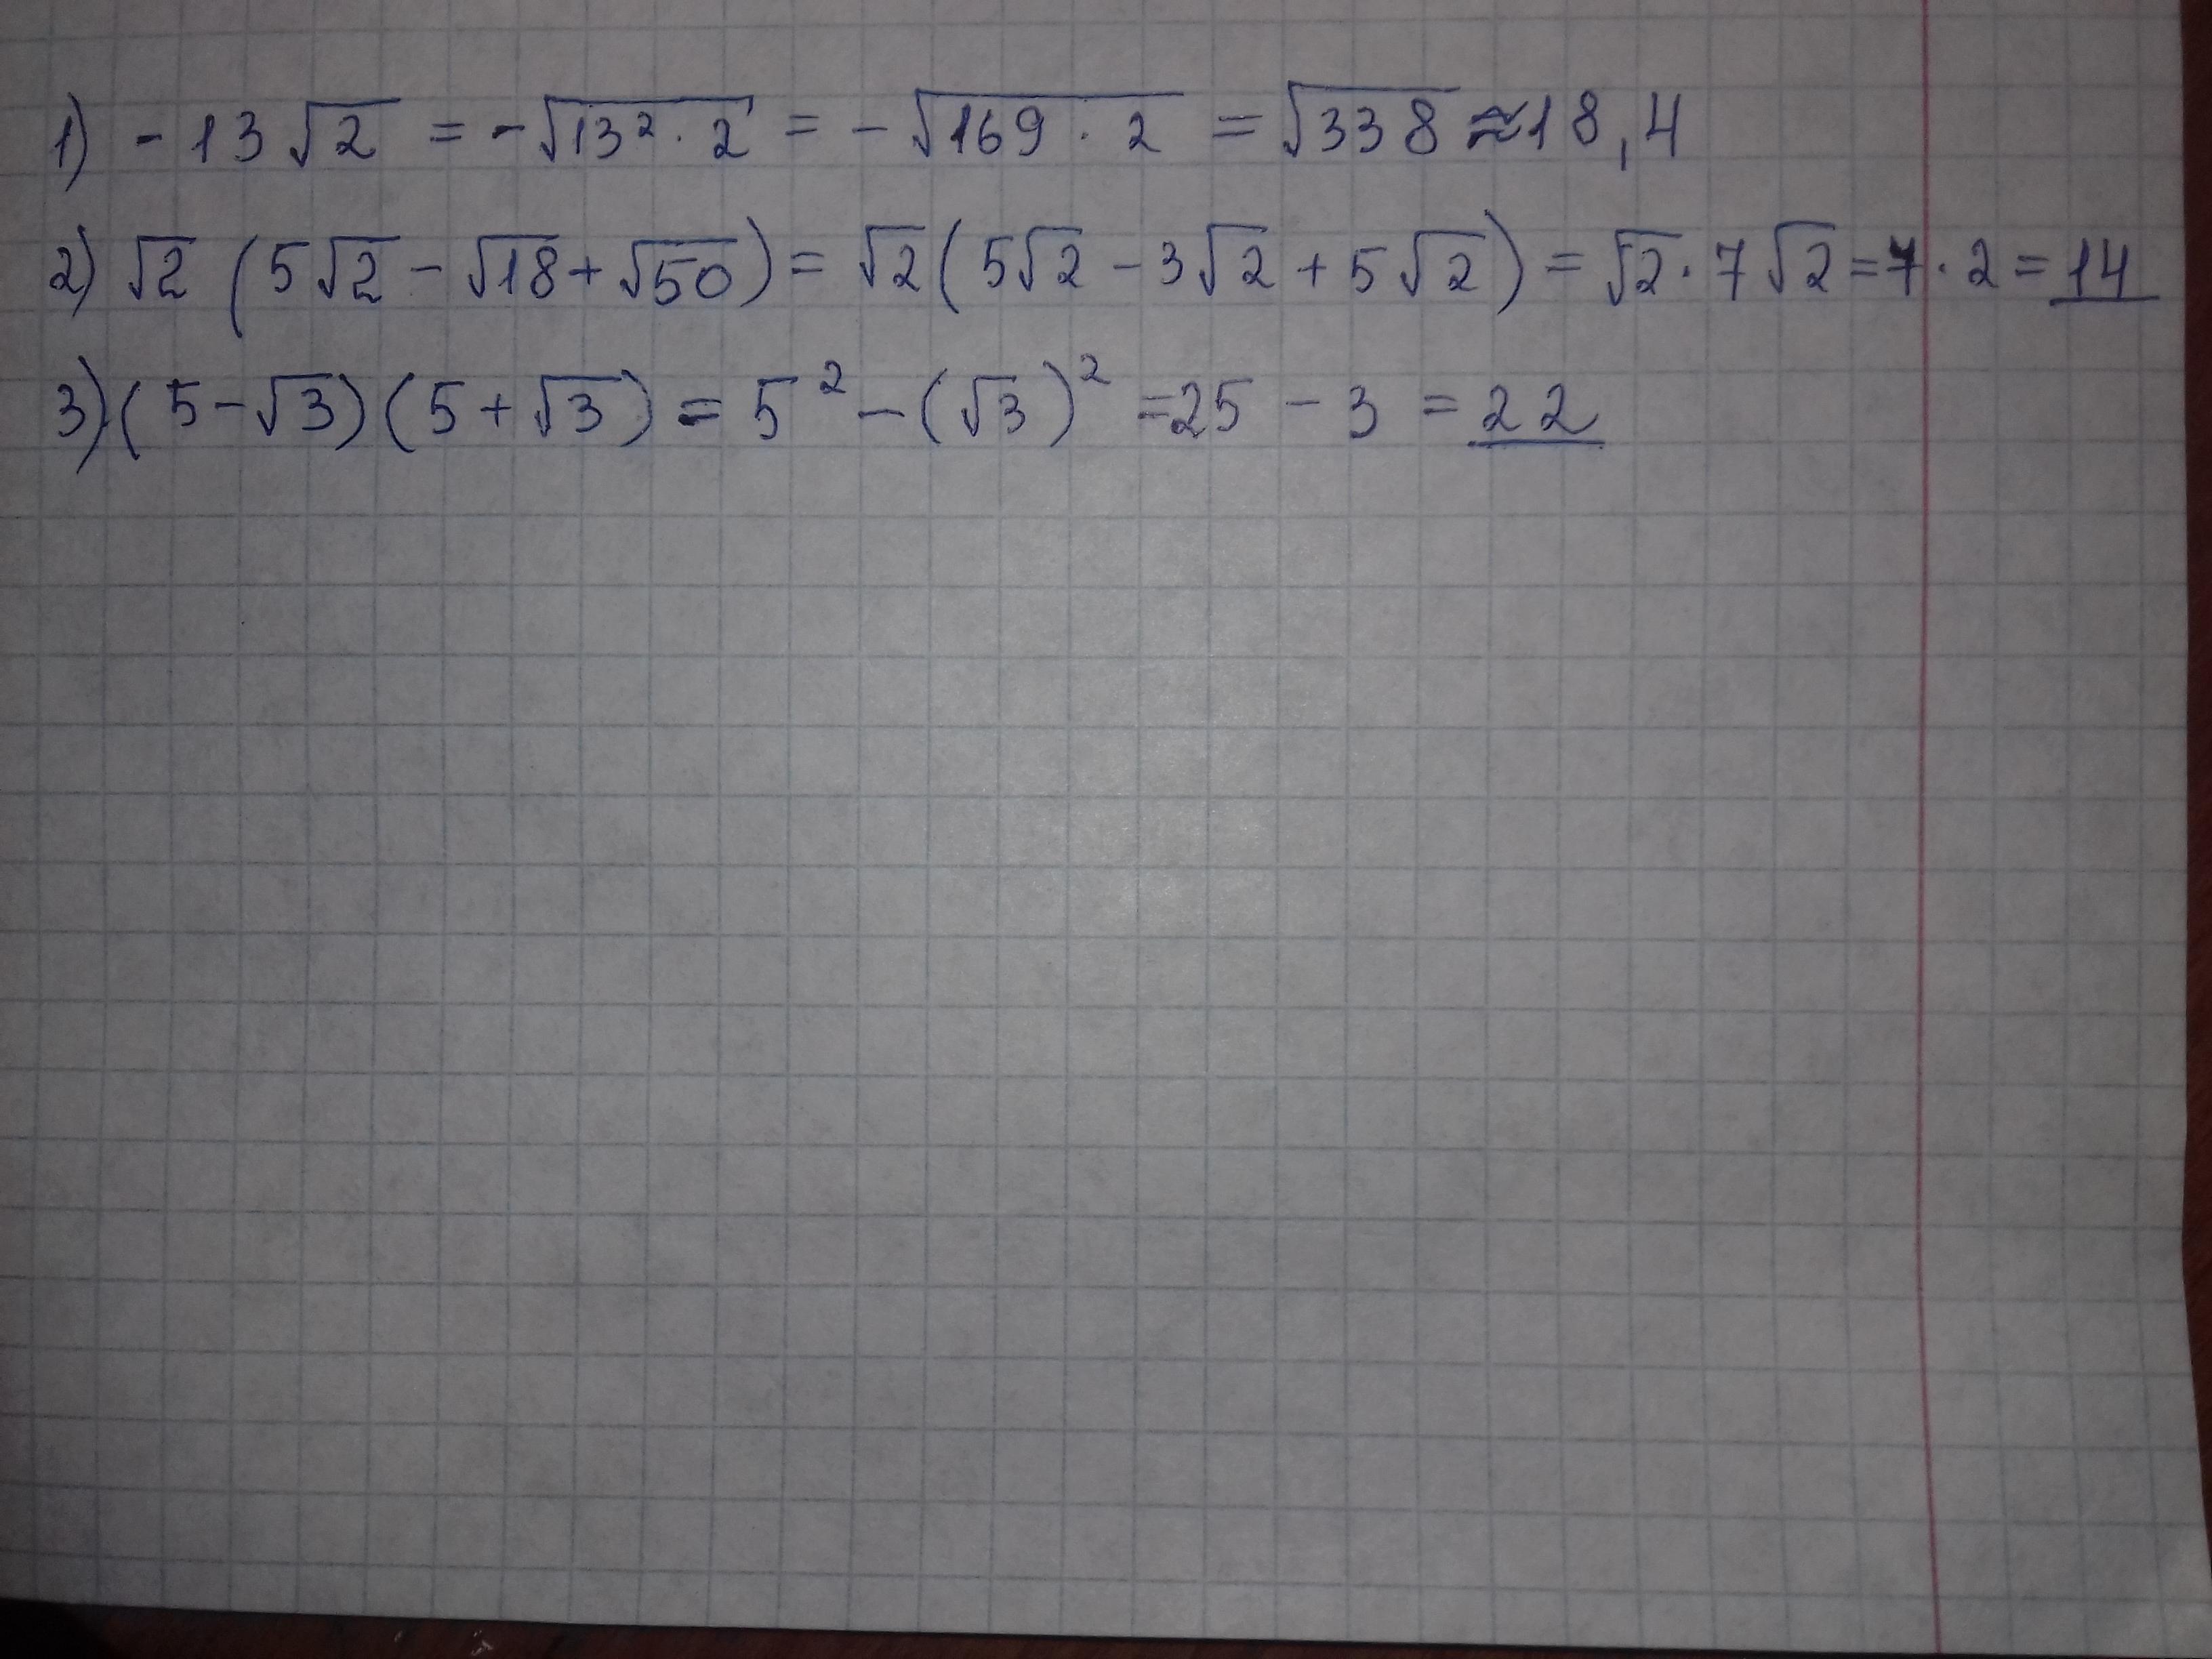 1) - 13 √2 = -√13² · 2 = -√169 · 2 = √338 ≈ 18,4
2) √2 (5√2 - √18 + √50) = √2 (5√2 - 3√2 + 5√2) = √2 · 7√2 = 7 · 2 = 14
3) (5 - √3) (5 + √3) = 5² - (√3)² = 25 - 3 = 22